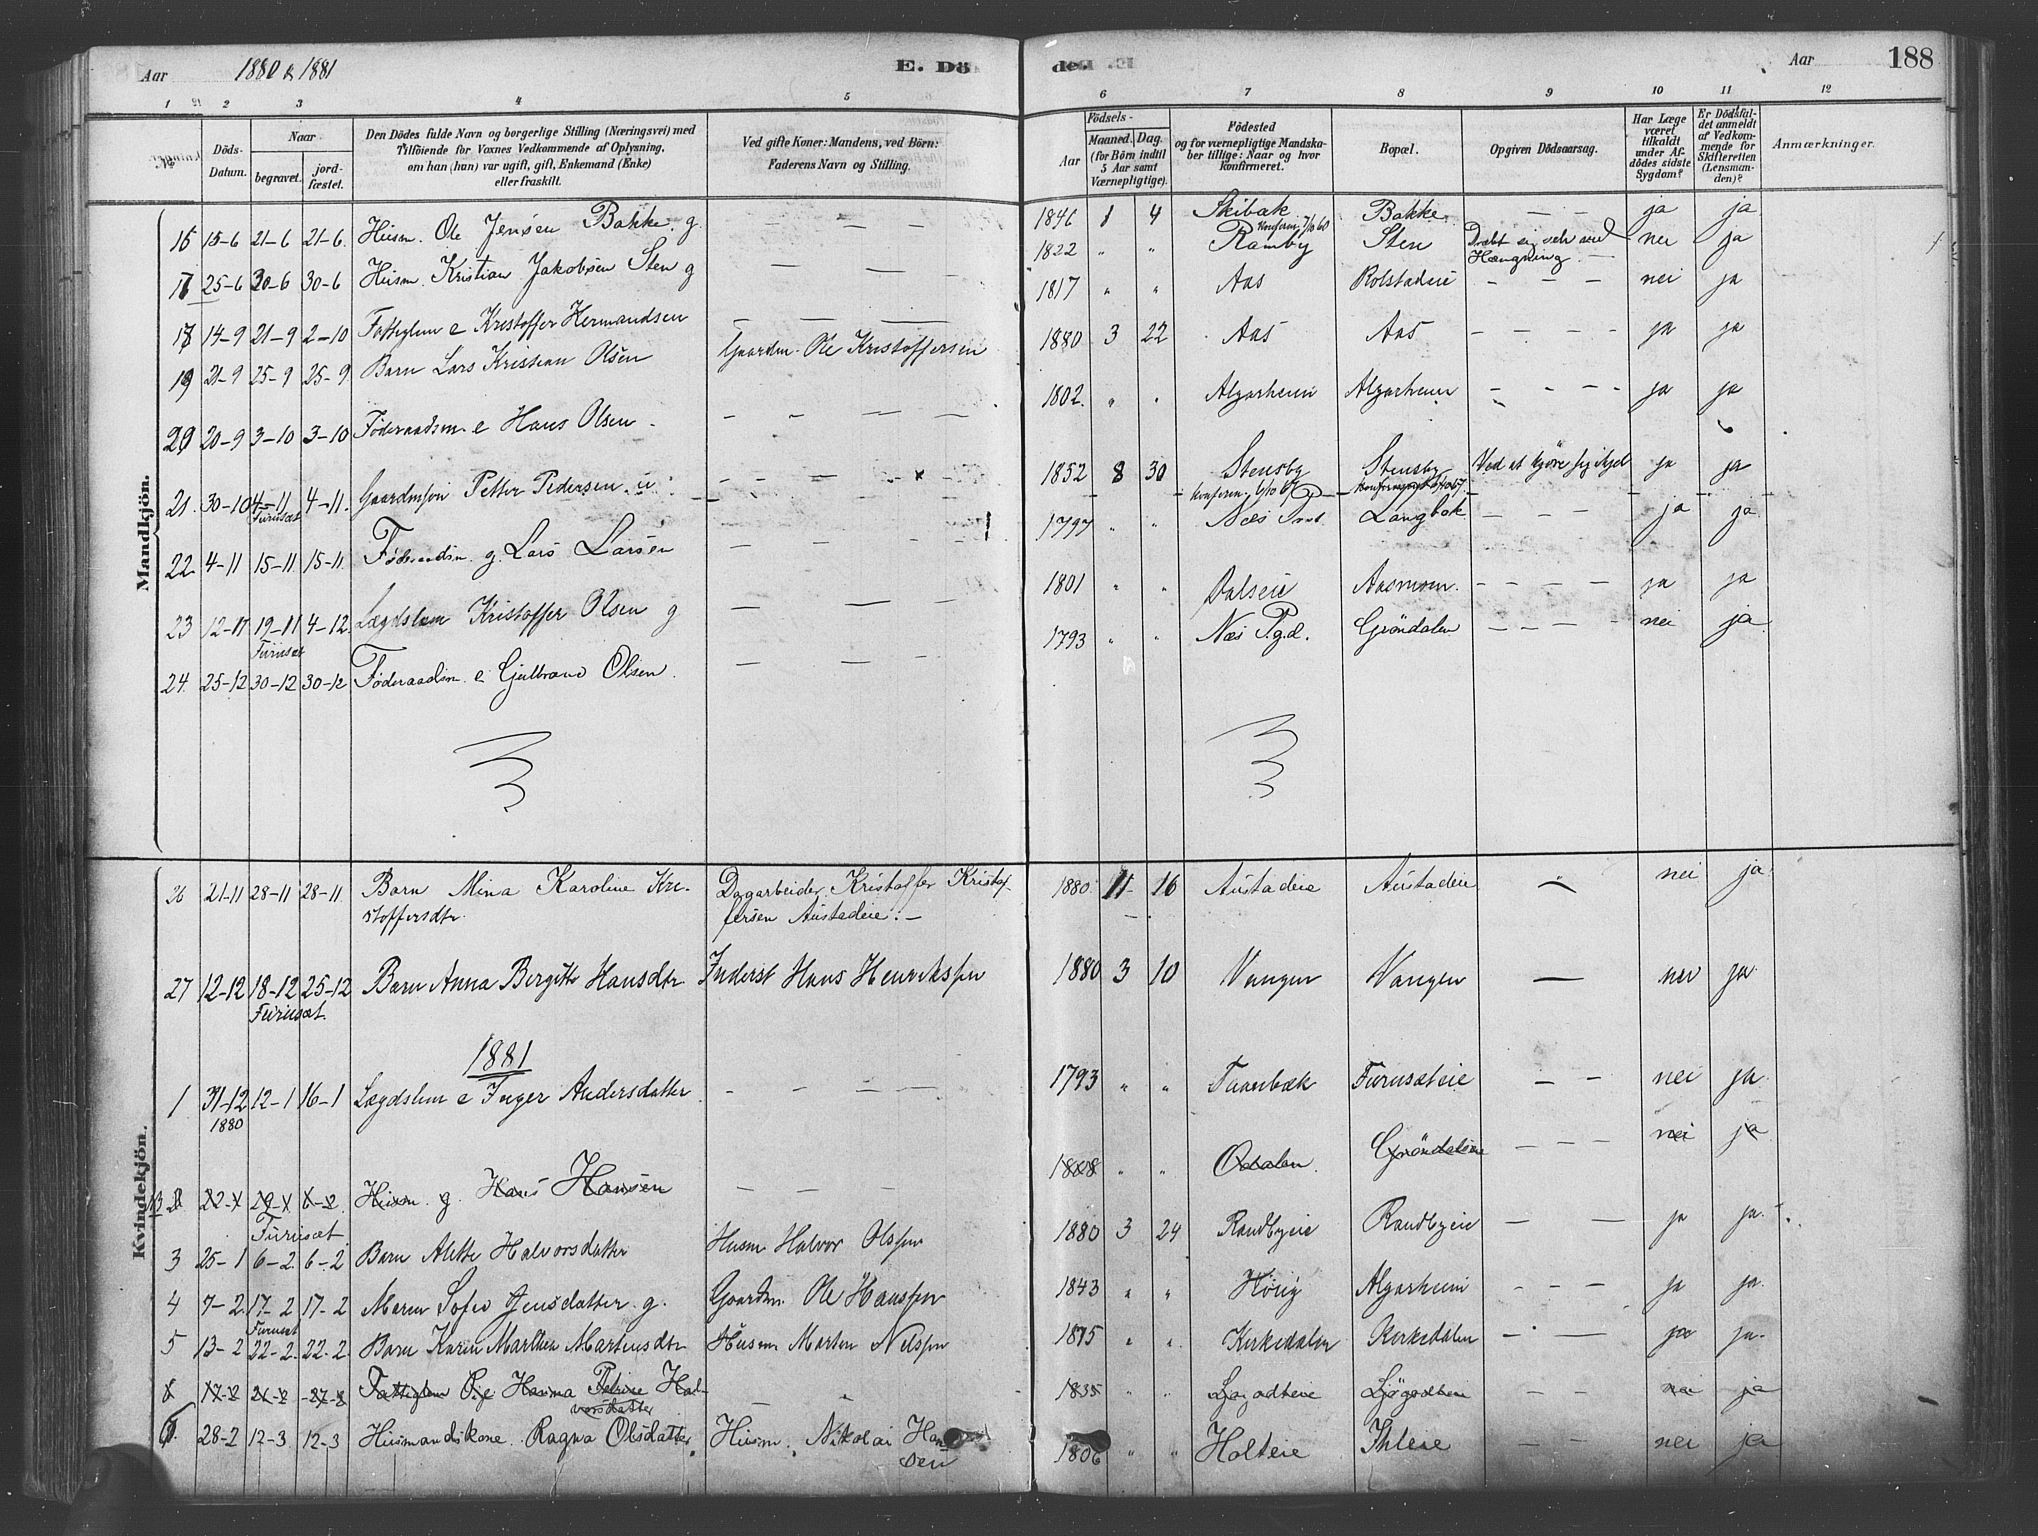 Aar 1880 & 1881
E. Dö
de.
Aar
188
1 2 3 4 5
6 7 8 9 10 11 12
Döds-Datum.
Naar
begravet.
jord-fæstet.
Den Dödes fulde Navn og borgerlige Stilling (Næringsvei) med
Tilföiende for Voxnes Vedkommende af Oplysning,
om han (hun) var ugift, gift, Enkemand (Enke)
eller fraskilt.
Ved gifte Koner: Mandens, ved Börn:
Faderens Navn og Stilling.
Födsels-
Aar
Maaned. Dag.
(for Börn indtil
5 Aar samt
Værnepligtige).
Födested
og for værnepligtige Mandska-
ber tillige: Naar og hvor
konfirmeret.
Bopæl.
Opgiven Dödsaarsag.
Har Læge
været
tilkaldt
under Af-
dödes sidste
Sygdom?
Er Dödsfal-
det anmeldt
af Vedkom-
mende for
Skifteretten
(Lensman-
den)?
Anmærkninger.
Mandkjön.
15-6 21-6 21-6 Husm. Ole Jensen Bakke. g. — — — — 1846 1 4 Skibak Konfirm. 7/10 60 Bakke — — ja ja
25-6 30-6 30-6 Husm. Kristian Jakobsen Sten g — — — 1822 " " Ramby Sten Dræbt sig selv ved Hængning — nei ja
14-9 21-9 2-10 Fattiglem e Kristoffer Hermandsen — — — 1817 " " Aas Rolstadeie — — — nei ja
21-9 25-9 25-9 Barn Lars Kristian Olsen Gaardm. Ole Kristoffersen 1880 3 22 Aas Aas — — — ja ja
20-9 3-10 3-10 Föderaadsm. e Hans Olsen — — — — 1802 " " Algarheim Algarheim — — — ja ja
21. 30-10 4-11 Furuset 4-11. Gaardmsön Petter Pedersen u. — — — 1852 8 30 Stensby Konferm. 6/10 67 Stensby Ved at kjöre sig ihjel ja ja
22 4-11 15-11 15-11. Föderaadsm. g. Lars Larsen — — — — 1797 " " Næs Langbak — — — ja ja
23 12-11 19-11 Furuset 4-12. Lægdslem Kristoffer Olsen g — — — 1801 " " Dalseie Aasmoen. — — — — ja ja
24. 25-12 30-12 30-12 Föderaadsm. e Gulbrand Olsen. — — — 1793 " " Næs Pgd. Gröndalen — — — — nei ja
Kvindekjön.
26 21-11 28-11 28-11 Barn Mina Karoline Kri-
stoffersdtr. Dagarbeider Kristoffer Kristof-
fersen Austadeie. — 1880 11 16 Austadeie Austadeie " nei ja
27 12-12 18-12 Furuset. 25-12 Barn Anna Bergitte Hansdtr Inderst Hans Henriksen 1880 3 10 Vangen Vangen — nei ja
1881
1 31-12 1880 12-1 16-1 Lægdslem e Inger Andersdatter — — — — 1793 " " Tuenbæk Furuseteie — — nei ja
22-1 29-1 6-2 Husm. g. Hans Hansen — — — 1808 " " Odalen. Gröndaleie — — — nei ja
3 25-1 Furuset 6-2. 6-2 Barn Alette Halvorsdatter Husm Halvor Olsen 1880 3 24 Randbyeie Randbyeie — — ja ja
4 7-2 17-2 17-2 Maren Sofie Jensdatter g. Gaardm. Ole Hansen 1843 " " Algarheim — — — ja ja
5 13-2 Furuset 22-2. 22-2 Barn Karen Marthea Martensdtr Husm Morten Nilsen 1875 " " Kirkedalen Kirkedalen — — ja ja
17-2 21-2 27-2 Fattiglem Pige Hanna Petrine Hal-
vorsdatter 1835 " " Ljögodteie — — nei ja
28-2 12-3 12-3 Husmandskone Ragna Olsdatter. Husm. Nikolai Han-
sen 1806 " " Holteie Ihleie — — nei ja